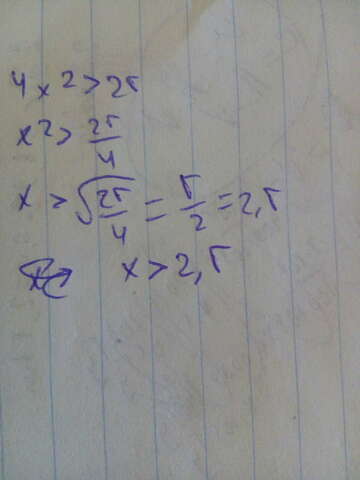 4x²>25
x²>25/4
x>√25/4=5/2=2,5
x>2,5